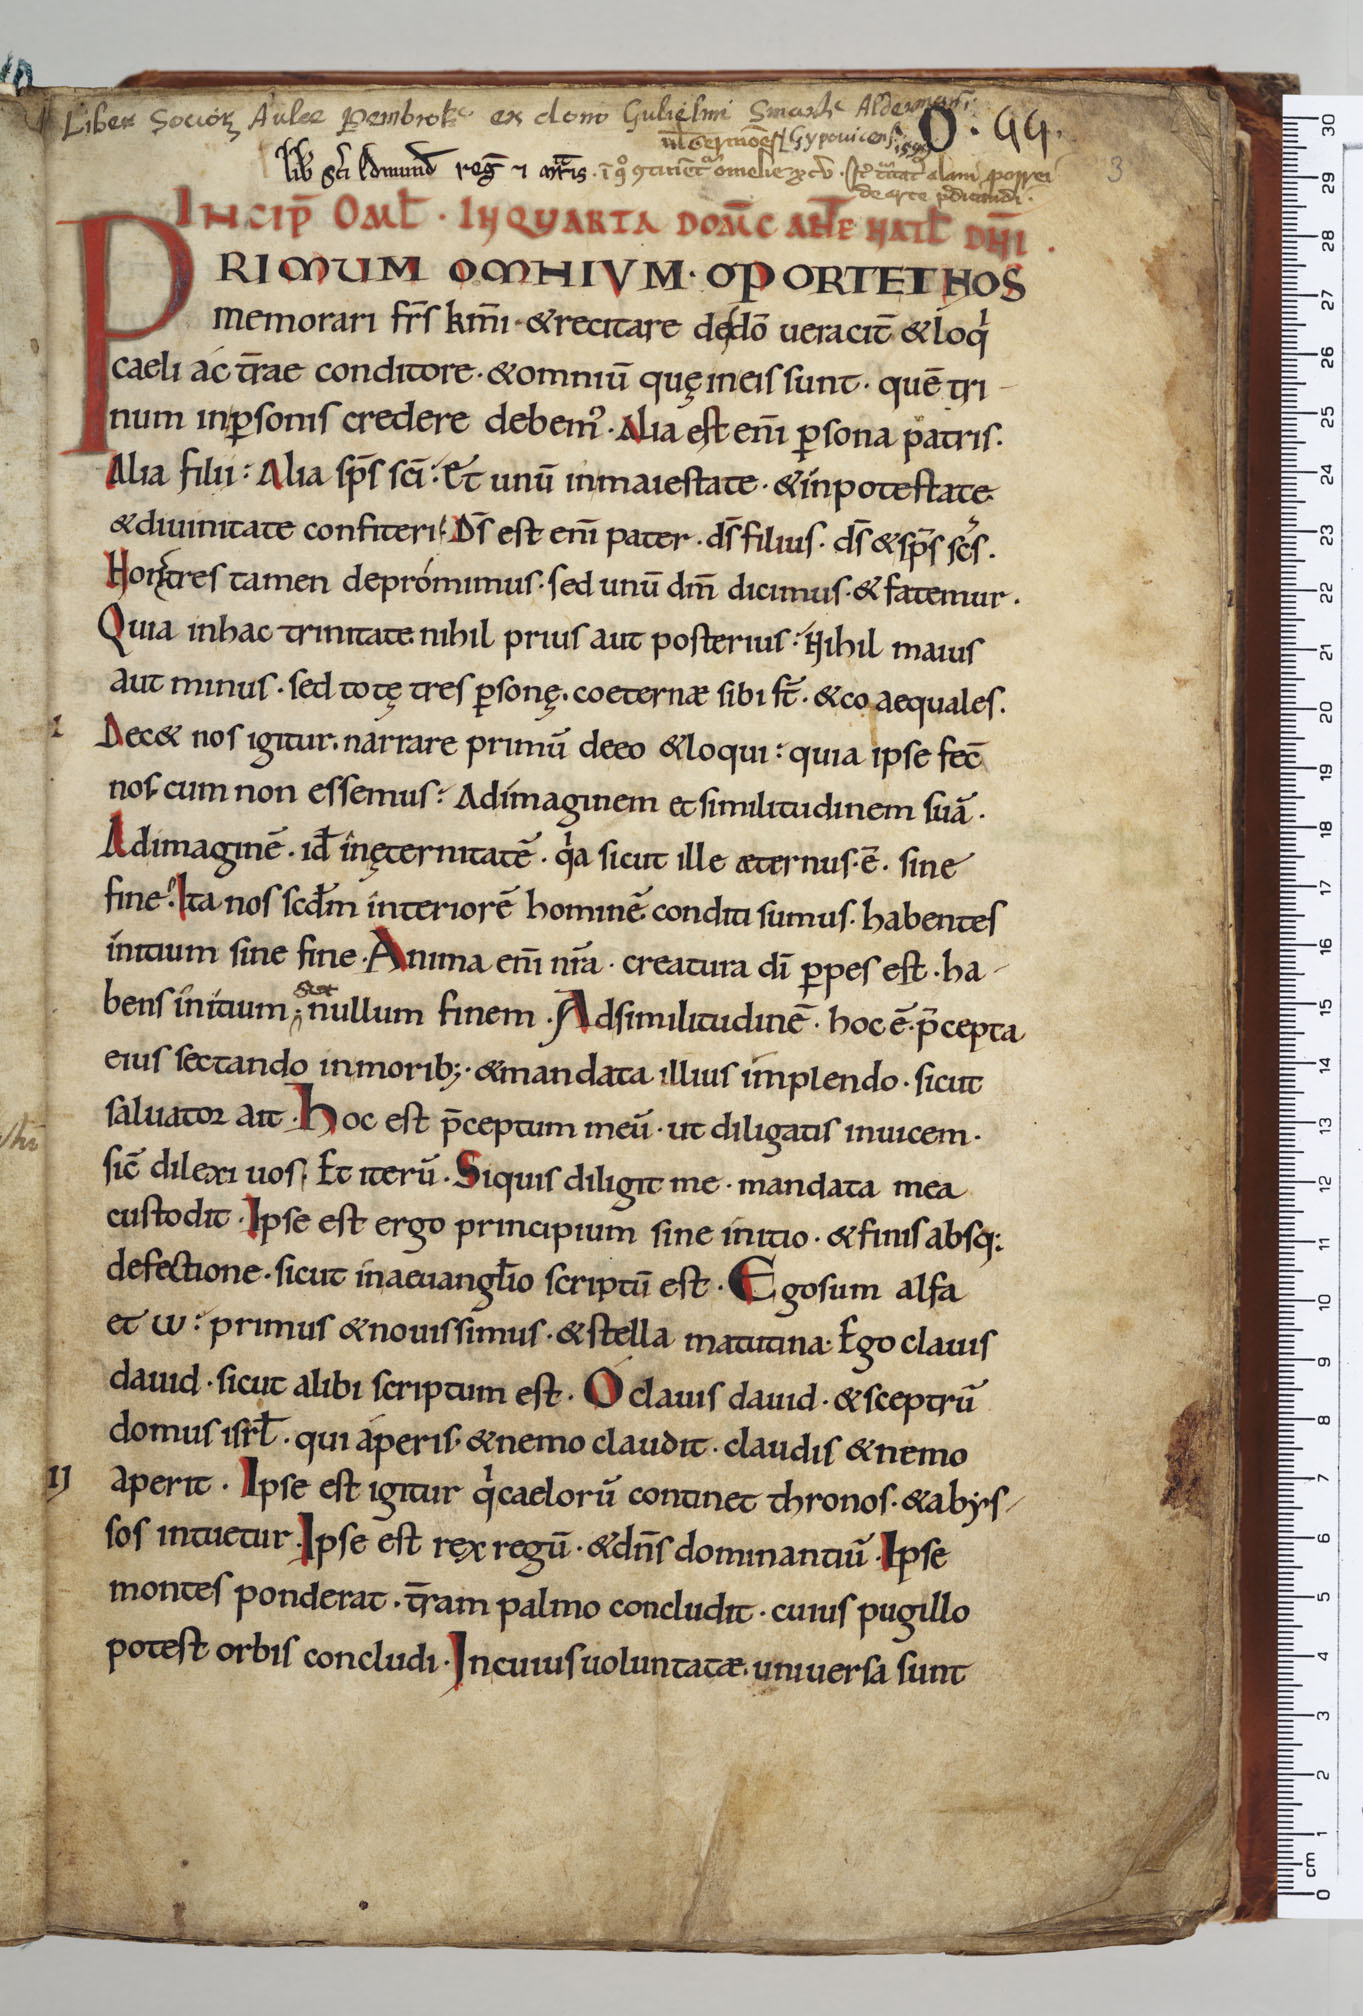 Liber Socioꝝ Aulæ Pembrok: ex dono Gulielmi Smarte Aldermani
ul̄ sermōes Gypouicens: 1599
O. 44.
lib̄ sc̄i Edmundi reg̅ ⁊ mr̄is. ī q̊ ꝯtinēt᷑ omelie xcv. It̄ t͛ctat᷑ alani porrei
de arte p̄dicandi.
3
INCIP̄ OML̄ · IN QUARTA DOM̄C ANTE NATL̄ DN̄I.
PRIMUM OMNIVM · OPORTET NOS
memorari fr̄s km̄i · & recitare de dō ueracit̄ & loqͥ
caeli ac t̄rae conditore · & omniū quę in eis sunt · quē tri-
num in ꝑsonis credere debem᷒ · Alia est eni̅ ꝑsona patris.
Alia filii: Alia sp̄s sc̄i: Et unū in maiestate · & in potestate
& diuinitate confiteri. Ds̄ est eni̅ pater · ds̄ filius · ds̄ & sp̄s sc̄s.
Non tres tamen deprómimus · sed unū dm̄ dicimus · & fatemur.
Quia in hac trinitate nihil prius aut posterius: Nihil maius
aut minus · sed totę tres ꝑsonę. coeternæ sibi st̄ · & co aequales.
I
Dec& nos igitur. narrare primū de eo & loqui: quia ipse fec̄
nos. cum non essemus: Ad imaginem et similitudinem suā.
Ad imaginē · id̄ in ęternitatē · qͥa sicut ille æternus · ē · sine
fine. Ita nos scd̄m interiorē hominē conditi sumus. habentes
initium sine fine. Anima eni̅ nr̄a · creatura dī ꝑpes est. ha-
bens initium. nullum finem. Ad similitudinē · hoc ē · p̄cepta
eius sectando in morib; · & mandata illius implendo. sicut
saluator ait. Hoc est p̄ceptum meū · ut diligatis inuicem.
sic̄ dilexi uos. Et iterū. Si quis diligit me · mandata mea
custodit. Ipse est ergo principium sine initio · & finis absq:
defectione. sicut in aeuangl̄io scriptū est. Ego sum alfa
et ω: primus & nouissimus · & stella matutina. Ego clauis
dauid · sicut alibi scriptum est. O clauis dauid · & sceptrū
domus isrl̄ · qui aperis. & nemo claudit. claudis & nemo
II
aperit. Ipse est igitur qͥ caelorū continet thronos · & abys-
sos intuetur. Ipse est rex regū · & dn̄s dominantiū. Ipse
montes ponderat · t̄ram palmo concludit · cuius pugillo
potest orbis concludi. In cuius uoluntatæ. uniuersa sunt
0 cm 1 2 3 4 5 6 7 8 9 10 11 12 13 14 15 16 17 18 19 20 21 22 23 24 25 26 27 28 29 30